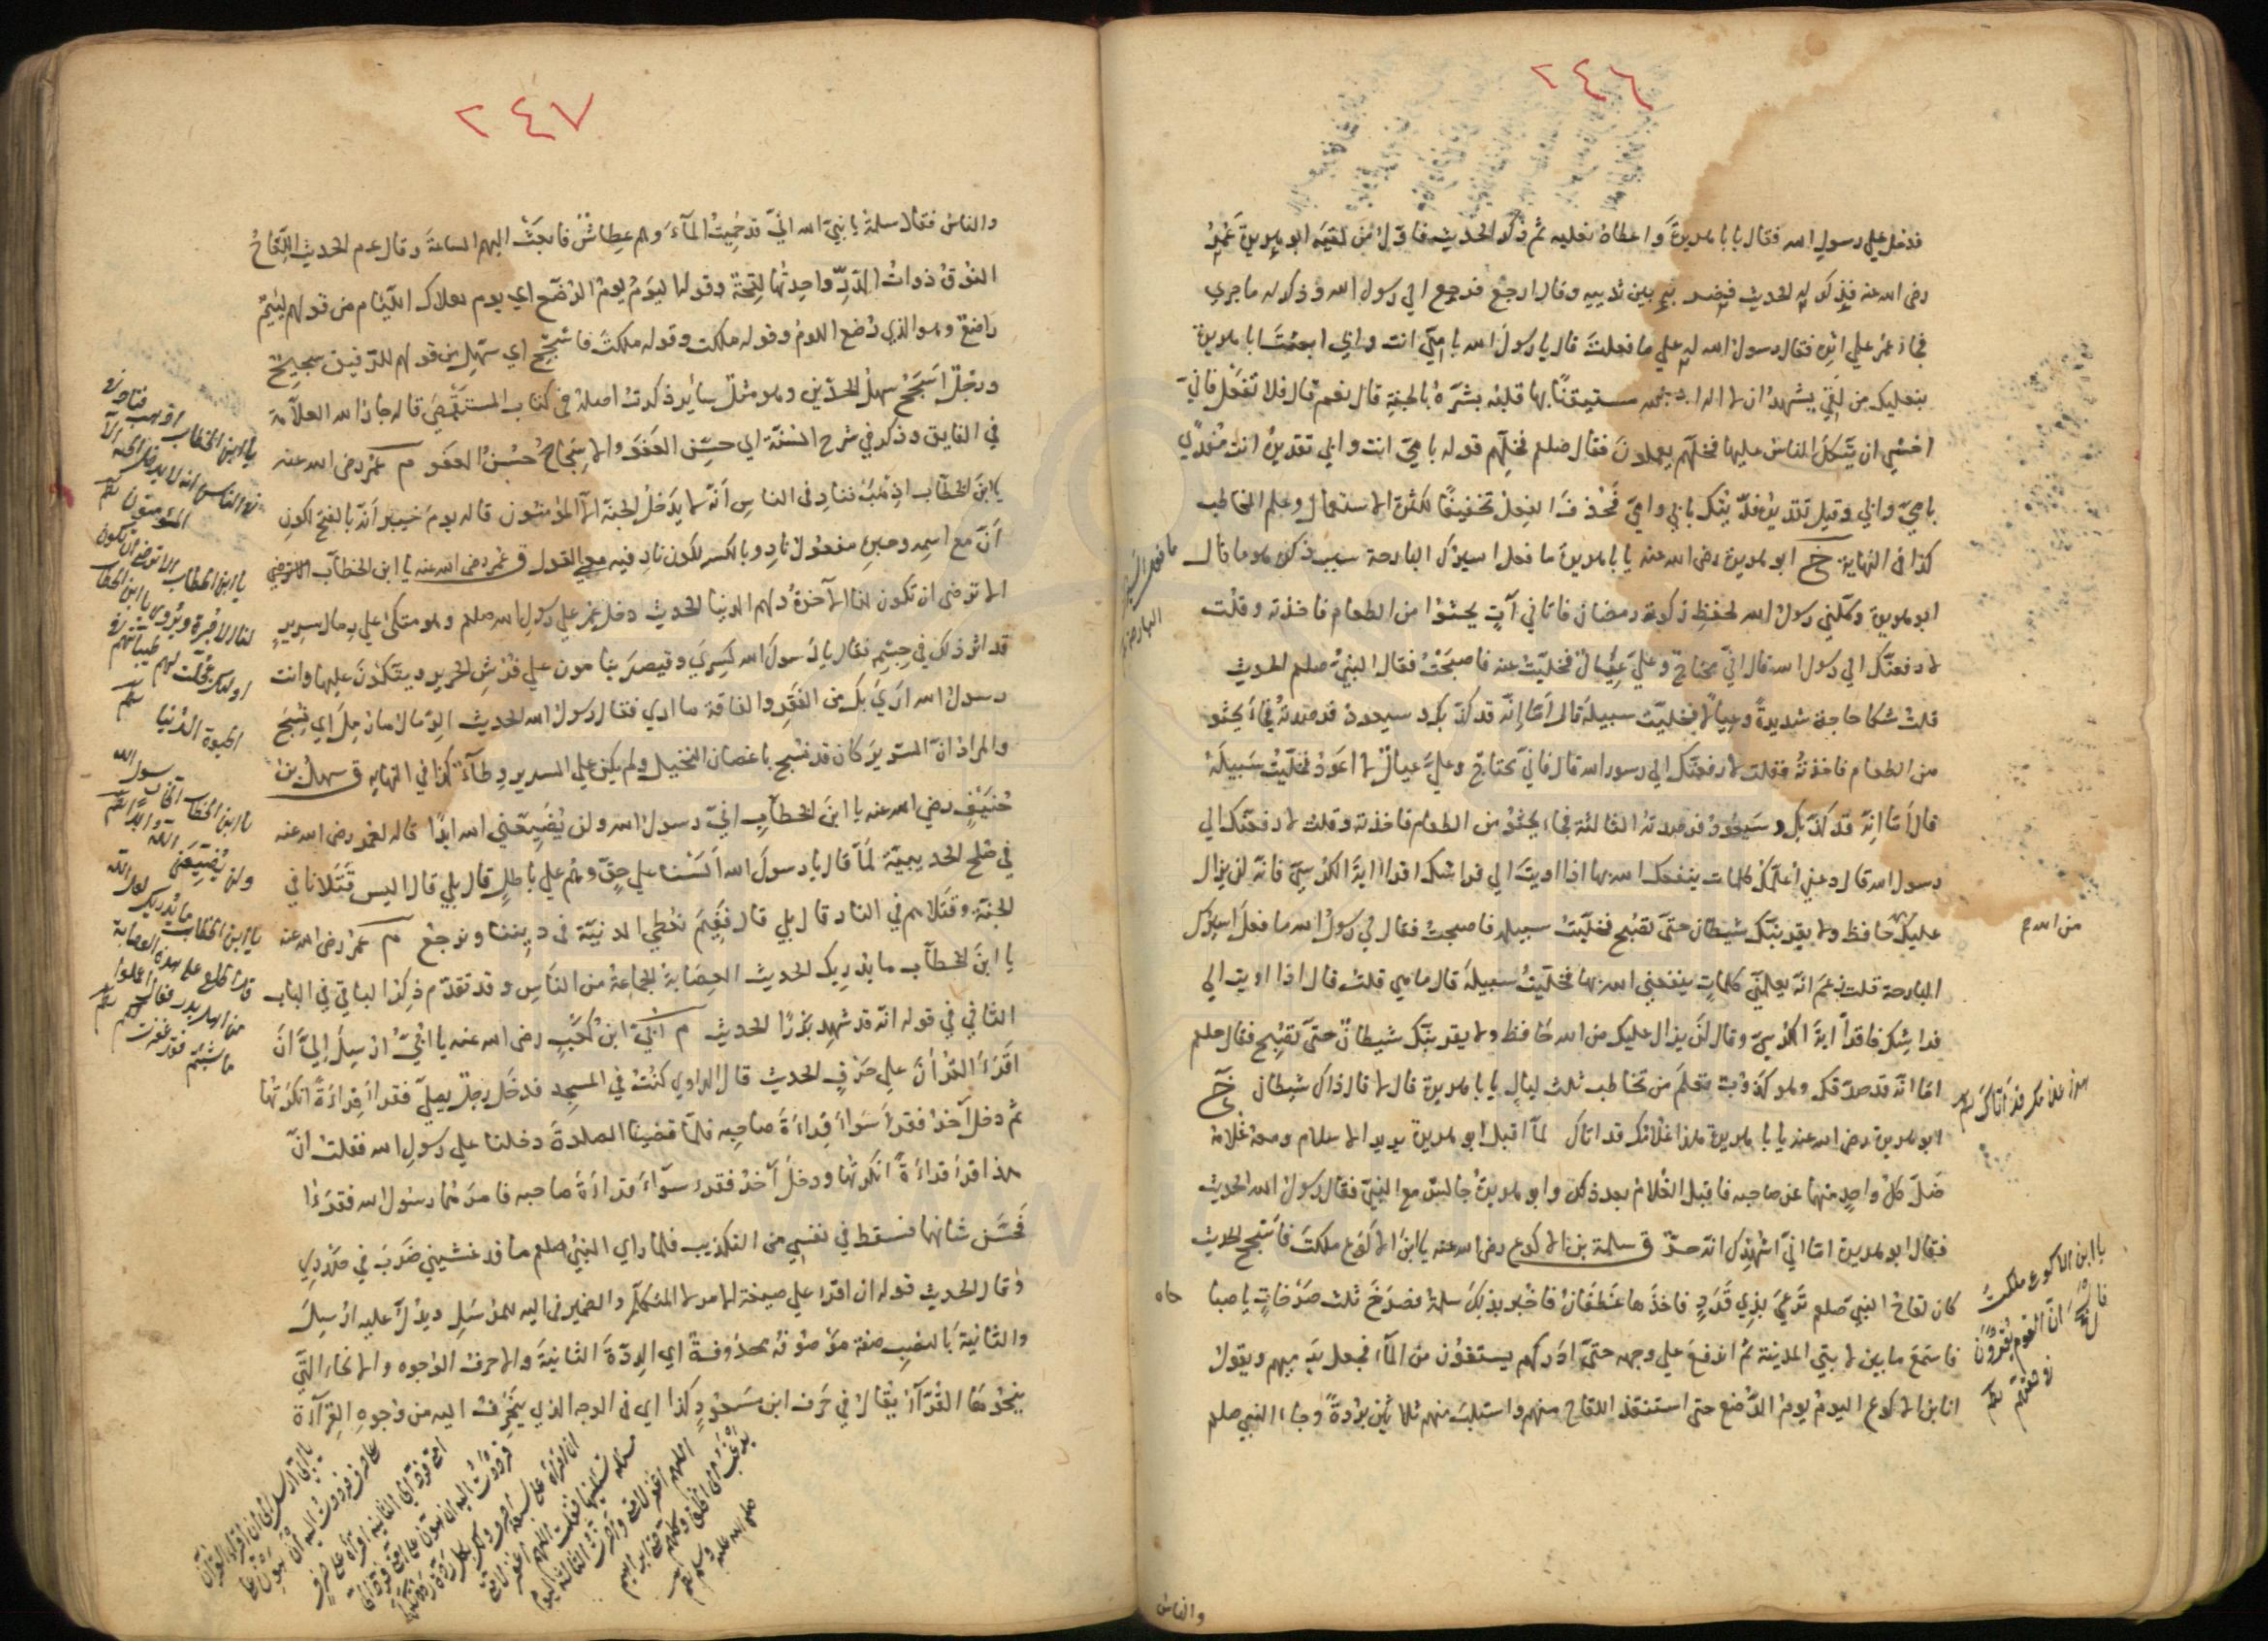 ٢٤٦
فدخل علي رسول الله فقال يا با هريرة واعطاه نعليه ثم ذكر الحديث فاول من لقيه ابو هريرة عمر
رضى الله عنه فذكر له الحديث فضرب بين ثدييه وقال ارجع فرجع الي رسول الله وذكر له ما جري
فجاء عمر علي اثره فقال رسول الله له علي ما فعلت قال يا رسول الله بابي انت وامي ابعثت ابا هريرة
بنعليك من لقي يشهد ان لا اله الا الله مستيقنا بها قلبه بشره بالجنة قال نعم قال فلا تفعل فاني
اخشي ان يتكل الناس عليها فخلهم يعملون فقال صلعم فخلهم قوله بابي انت وامي تقديره انت مفدي
بابي وامي وقيل تقديره فديتك بابي وامي فحذف هذا الفعل تخفيفا لكثرة الاستعمال وعلم المخاطب
كذا في النهاية خ ابو هريرة رضى الله عنه يا با هريرة ما فعل اسيرك البارحة سبب ذكره هو ما قال
ابو هريرة وكلني رسول الله لحفظ زكوة رمضان فاتاني آت يحثوا من الطعام فاخذته وقلت
لارفعنك الي رسول الله قال اني محتاج وعلي عيال فخليت عنه فاصبحت فقال النبي صلعم الحديث
قلت شكا حاجة شديدة وعيالا فخليت سبيله قال اما انه قد كذبك و سيعود فرصدته فجاء يحثو
من الطعام فاخذته فقلت لارفعنك الي رسول الله قال فاني محتاج وعلي عيال لا اعود فخليت سبيله
قال اما انه قد كذبك وسيعود فرصدته الثالثة فجاء يحثو من الطعام فاخذته وقلت لارفعنك الي
رسول الله قال دعني اعلمك كلمات ينفعك الله بها اذا اويت الي فراشك اقرا اية الكرسي فانه لن يزال
عليك حافظ ولا يقربنك شيطان حتى تصبح فخليت سبيله فاصبحت فقال لي رسول الله ما فعل اسيرك
البارحة قلت زعم انه يعلمني كلمات ينفعني الله بها فخليت سبيله قال ما هي قلت قال اذا اويت الي
فراشك فاقرأ اية الكرسي وقال لن يزال عليك من الله حافظ ولا يقربنك شيطان حتى تصبح فقال صلعم
اما انه قد صدقك وهو كذوب تعلم من تخاطب ثلث ليال يا با هريرة قال لا قال ذاك شيطان خ
ابو هريرة رضى الله عنه يا با هريرة هذا غلامك قد اتاك لما اقبل ابو هريرة يريد الاسلام ومعه غلامه
ضل كل واحد منهما عن صاحبه فاقبل الغلام بعد ذلك وابو هريرة جالس مع النبي فقال رسول الله الحديث
فقال ابو هريرة اما اني اشهدك انه حر ق سلمة بن الاكوع رضى الله عنه يا ابن الاكوع ملكت فاسجح الحديث
كان لقاح النبي صلعم ترعى بذي قرد فاخذها غطفان فاخبر بذلك سلمة فصرخ ثلث صرخات يا صبا حاه
فاسمع ما بين لابتي المدينة ثم اندفع علي وجهه حتى ادركهم يستقون من الماء فجعل يرميهم ويقول
انا ابن الاكوع اليوم يوم الرضع حتى استنقذ اللقاح منهم واستلب منهم ثلاثين بردة وجاء النبي صلعم
والناس
ما فعل اسيرك
البارحة
من الله
هذا غلامك قد اتاك
يا ابن الاكوع ملكت
فاسجح ان القوم يقرون
في قومهم
٢٤٧
والناس فقال سلمة يا نبي الله اني قد حميت الماء وهم عطاش فابعث اليهم الساعة وقال عم الحديث اللقاح
النوق ذوات الدر واحدتها لقحة وقوله اليوم يوم الرضع اي يوم هلاك اللئام من قولهم لئيم
راضع وهو الذي رضع اللؤم وقوله ملكت وقوله ملكت فاسجح اي سهل من قولهم للرفيق سجيح
ورجل اسجح سهل الخدين وهو مثل سائر ذكرت اصله في كتاب المستقصى قاله جار الله العلامة
في الفايق وذكر في شرح السنة اي حسن العفو والاسجاح حسن العفو م عمر رضى الله عنه
يا ابن الخطاب اذهب فناد في الناس انه لا يدخل الجنة الا المؤمنون قاله يوم خيبر انه بالفتح لكون
ان مع اسمه وخبره مفعول ناد وبالكسر لكون ناد فيه معني القول ق عمر رضى الله عنه يا ابن الخطاب
الا ترضى ان تكون لنا الآخرة ولهم الدنيا الحديث دخل عمر علي رسول الله صلعم وهو متكئ علي رمال سرير
قد اثر ذلك في جسمه فقال يا رسول الله كسري وقيصر ينامون علي فرش الحرير ويتكئون عليها وانت
رسول الله اري بك من الفقر والفاقة ما اري فقال رسول الله الحديث الرمال ما رمل اي نسج
والمراد ان السرير كان قد نسج باغصان النخيل ولم يكن علي السرير وطاء كذا في النهاية ق سهل بن
حنيف رضي الله عنه يا ابن الخطاب اني رسول الله ولن يضيعني الله ابدا قاله لعمر رضى الله عنه
في صلح الحديبية لما قال يا رسول الله السنا علي حق وهم علي باطل قال بلي قال اليس قتلانا في
الجنة وقتلاهم في النار قال بلي قال ففيم نعطي الدنية في ديننا ونرجع م عمر رضى الله عنه
يا ابن الخطاب ما يدريك الحديث العصابة الجماعة من الناس وقد تقدم ذكر الباقي في الباب
الثاني في قوله انه قد شهد بدرا الحديث م ابي ابن كعب رضى الله عنه يا ابي ارسل الي ان
اقرء القرأن علي حرف الحديث قال الراوي كنت في المسجد فدخل رجل يصلي فقرأ قراءة انكرتها
ثم دخل آخر فقرأ سواء قراءة صاحبه فلما قضينا الصلوة دخلنا علي رسول الله فقلت ان
هذا قرأ قراءة انكرتها ودخل آخر فقرء سوآء قراءة صاحبه فامرهما رسول الله فقرءا
فحسن شانهما فسقط في نفسي من التكذيب فلما راي النبي صلعم ما قد غشيني ضرب في صدري
وقال الحديث قوله ان اقرا علي صيغة الامر لا المتكلم والضمير في اليه للمرسل ويدل عليه ارسل
والثانية بالنصب صفة موصوفة محذوفة اي الردة الثانية والاحرف الوجوه والانحاء التي
ينحوها القرآن يقال في حرف ابن مسعود كذا اي في الوجه الذي ينحرف اليه من وجوه القرآءة
يا ابن الخطاب اذهب فناد
في الناس انه لا يدخل الجنة الا
المؤمنون
يا ابن الخطاب الا ترضى ان تكون
لنا الاخرة ويروى يا ابن الخطاب
اولئك عجلت لهم طيباتهم في
الحيوة الدنيا
يا ابن الخطاب اني رسول الله
ولن يضيعني الله ابدا
يا ابن الخطاب ما يدريك لعل الله
قد اطلع على هذه العصابة
من اهل بدر فقال اعملوا
ما شئتم فقد غفرت لكم
يا ابي ارسل الي ان اقرا القرآن
على حرف فرددت اليه ان هون على
امتي فرد الي الثانية اقرأه على حرف
فرددت اليه ان هون على امتي فرد الي
ان اقرأه على سبعة احرف ولك بكل ردة
مسألة تسألنيها فقلت اللهم اغفر لامتي
اللهم اغفر لامتي واخرت الثالثة ليوم
يرغب الي الخلق كلهم حتى ابراهيم
صلى الله عليه وسلم